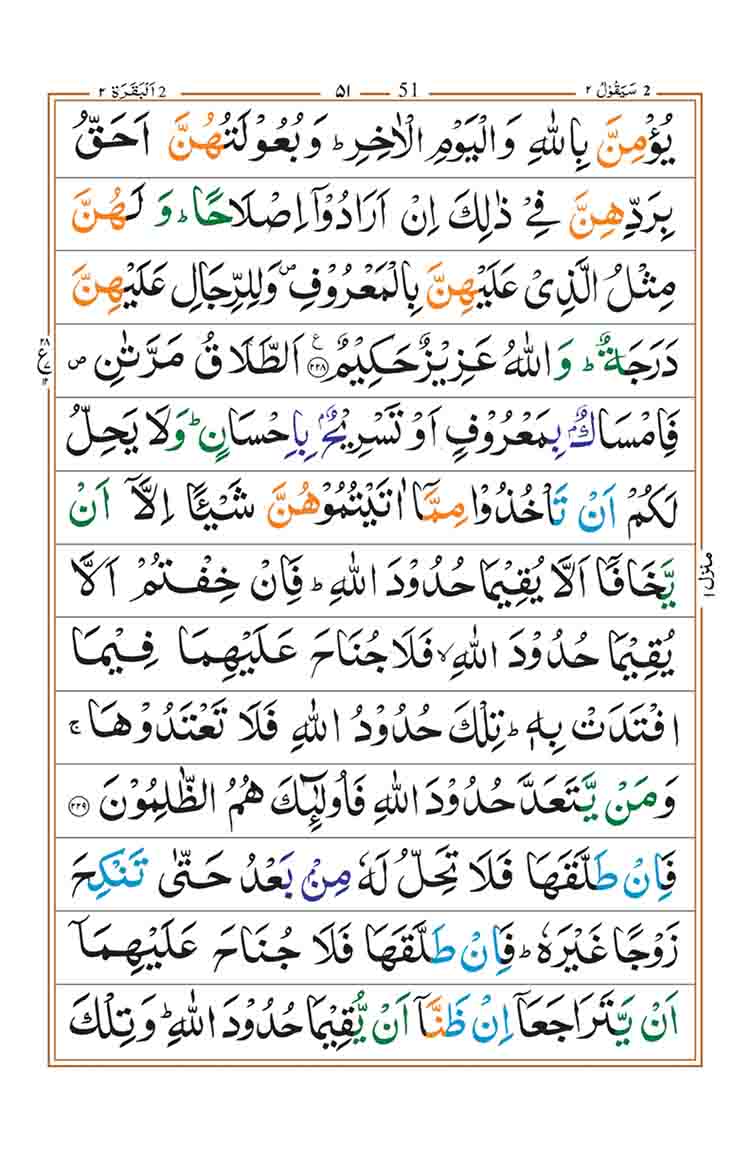 2 سَيَقُوْلُ ٢ — 51 — ٥١ — 2 اَلْبَقَرَة ٢
يُؤْمِنَّ بِاللّٰهِ وَالْيَوْمِ الْاٰخِرِ ؕ وَبُعُوْلَتُهُنَّ اَحَقُّ
بِرَدِّهِنَّ فِىْ ذٰلِكَ اِنْ اَرَادُوْٓا اِصْلَاحًا ؕ وَلَهُنَّ
مِثْلُ الَّذِىْ عَلَيْهِنَّ بِالْمَعْرُوْفِ ۪ وَلِلرِّجَالِ عَلَيْهِنَّ
دَرَجَةٌ ؕ وَاللّٰهُ عَزِيْزٌ حَكِيْمٌ ﴿٢٢٨﴾ ع اَلطَّلَاقُ مَرَّتٰنِ ص
فَاِمْسَاكٌۢ بِمَعْرُوْفٍ اَوْ تَسْرِيْحٌۢ بِاِحْسَانٍ ؕ وَلَا يَحِلُّ
لَكُمْ اَنْ تَاْخُذُوْا مِمَّآ اٰتَيْتُمُوْهُنَّ شَيْـًٔا اِلَّآ اَنْ
يَّخَافَآ اَلَّا يُقِيْمَا حُدُوْدَ اللّٰهِ ؕ فَاِنْ خِفْتُمْ اَلَّا
يُقِيْمَا حُدُوْدَ اللّٰهِ ۙ فَلَا جُنَاحَ عَلَيْهِمَا فِيْمَا
افْتَدَتْ بِهٖ ؕ تِلْكَ حُدُوْدُ اللّٰهِ فَلَا تَعْتَدُوْهَا ج
وَمَنْ يَّتَعَدَّ حُدُوْدَ اللّٰهِ فَاُولٰٓئِكَ هُمُ الظّٰلِمُوْنَ ﴿٢٢٩﴾
فَاِنْ طَلَّقَهَا فَلَا تَحِلُّ لَهٗ مِنْۢ بَعْدُ حَتّٰى تَنْكِحَ
زَوْجًا غَيْرَهٗ ؕ فَاِنْ طَلَّقَهَا فَلَا جُنَاحَ عَلَيْهِمَآ
اَنْ يَّتَرَاجَعَآ اِنْ ظَنَّآ اَنْ يُّقِيْمَا حُدُوْدَ اللّٰهِ ؕ وَتِلْكَ
منزل ١